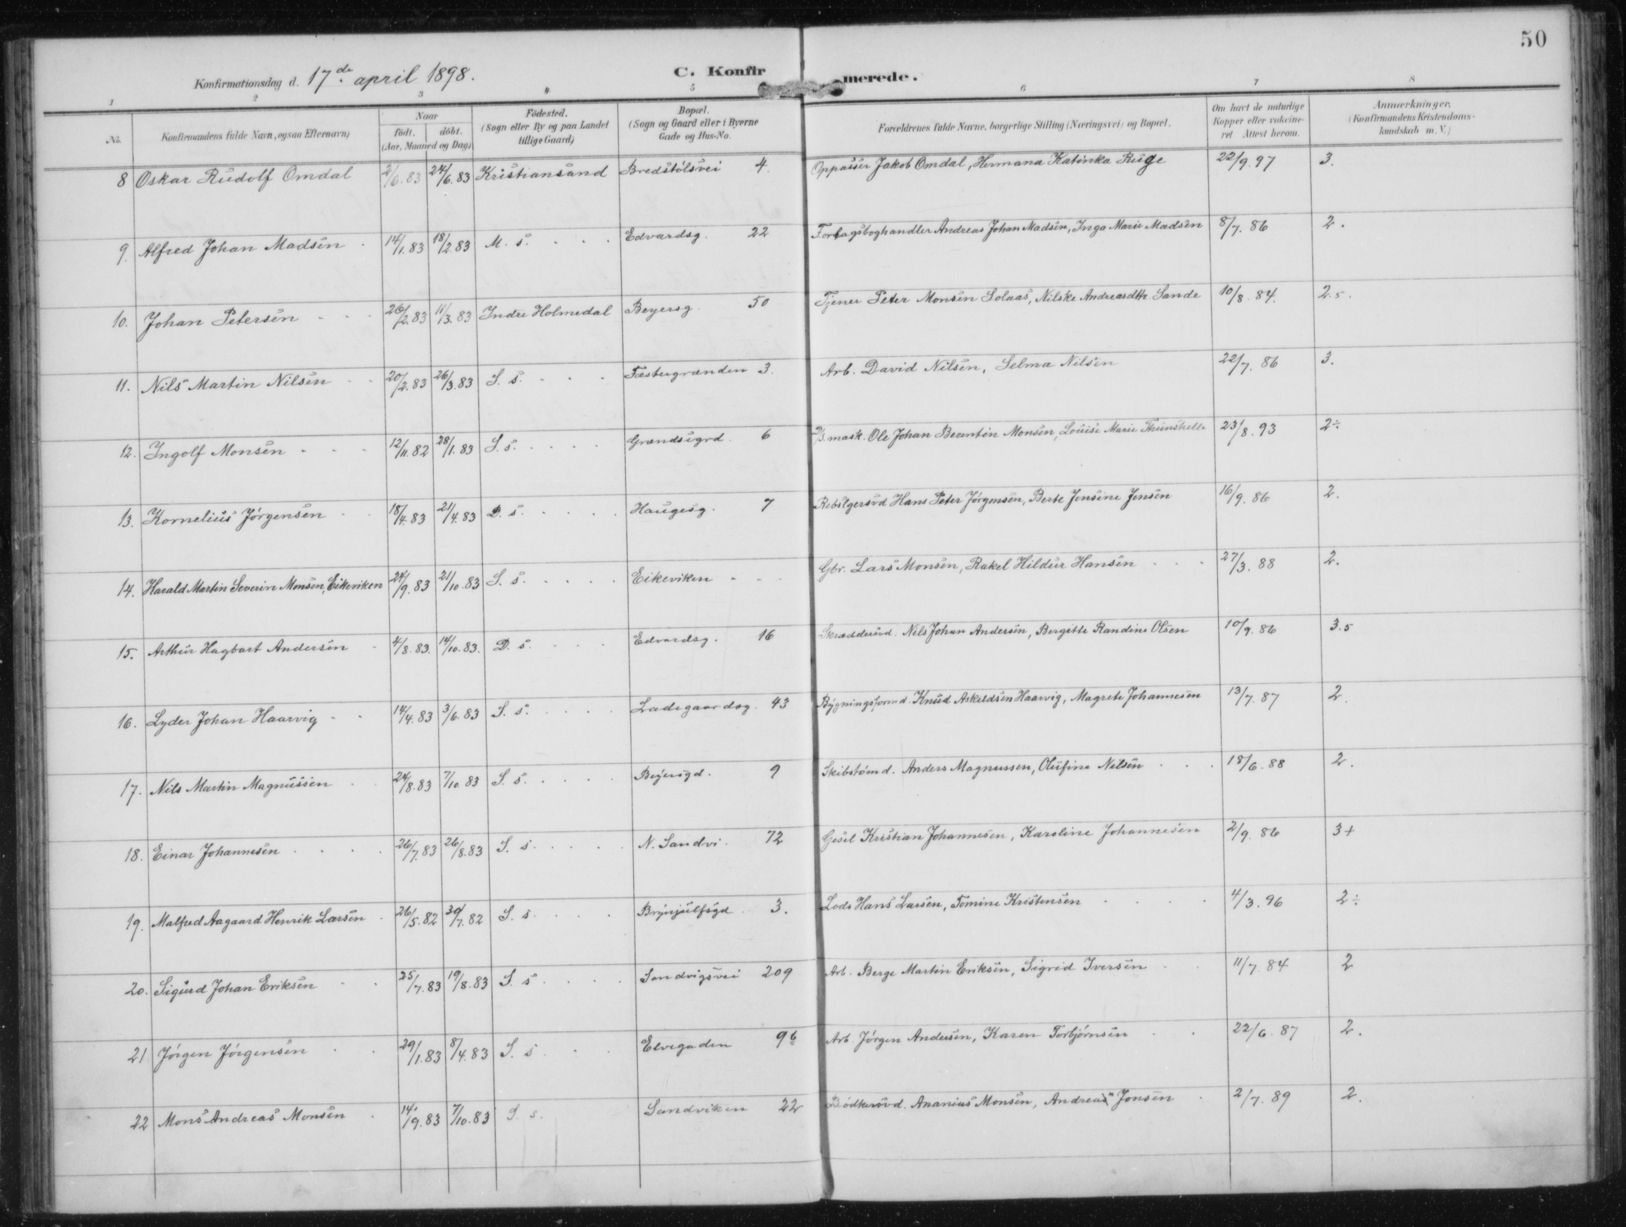 50
C. Konfirmerede.
Konfirmationsdag d. 17de april 1898.
1 2 3 4 5 6 7 8
No.
Konfirmandens fulde Navn, ogsaa Efternavn)
Naar
født. døbt.
(Aar, Maaned og Dag)
Fødested.
(Sogn eller By og paa Landet
tillige Gaard)
Bopæl.
(Sogn og Gaard eller i Byerne
Gade og Hus-No.
Forældrenes fulde Navne, borgerlige Stilling (Næringsvei) og Bopæl.
Om havt de naturlige
Kopper eller vakcine-
ret Attest herom.
Anmærkninger.
(Konfirmandens Kristendoms-
kundskab m. V.)
8 Oskar Rudolf Omdal 2/6.83 24/6.83 Kristiansand Bredstølsvei 4. Oppasser Jakob Omdal, Hermana Katinka Ruge 22/9.97 3.
9. Alfred Johan Madsen 14/1.83 18/2.83 M. s. Edvardsg. 22 Forlagsboghandler Andreas Johan Madsen, Inga Marie Madsen 8/7.86 2.
10. Johan Petersen 26/2.83 11/3.83 Indre Holmedal Beyersg. 50 Tjener Peter Monsen Solaas, Nilske Andreasdtr. Sande 10/8.84. 2.5.
11. Nils Martin Nilsen 20/2.83 26/3.83 S. s. Fæstegrænden 3. Arb. David Nilsen, Selma Nilsen 22/7.86 3.
12. Ingolf Monsen 12/11.82 28/1.83 S. s. Grændsigrd. 6 mask. Ole Johan Monsen, Louise Marie 23/8.93 2÷
13. Kornelius Jørgensen 18/4.83 21/4.83 D. s. Haugesg. 7 Rebslgersvd Hans Peter Jørgensen, Berte Jensine Jensen 16/9.86 2.
14. Harald Martin Severin Monsen, Eikeviken 24/9.83 21/10.83 S. s. Eikeviken Gbr. Lars Monsen, Rakel Hildur Hansen 27/3.88 2.
15. Arthur Hagbart Andersen 4/8.83. 14/10.83. D. s. Edvardsg. 16 Skræddersvd. Nils Johan Andersen, Bergitte Randine Olsen 10/9.86 3.5
16. Lyder Johan Haarvig 14/4.83 3/6.83 S. s. Ladegaardsg. 43 Bygningsformd. Knud Askeldsen Haarvig, Magrete Johannesen 13/7.87 2.
17. Nils Martin Magnussen 24/8.83 7/10.83 S. s. Beyersgd. 9 Skibstømd. Anders Magnussen, Olufine Nilsen 18/6.88 2.
18. Einar Johannesen 26/7.83 26/8.83 S. s. N. Sandvi. 72 Gesel Kristian Johannesen, Karoline Johannesen 2/9.86 3+
19. Malfred Aagaard Henrik Larsen 26/5.82 30/7.82 S. s. Brynjulfsgd 3. Lods Hans Larsen, Tomine Kristensen 4/3.96 2÷
20. Sigurd Johan Eriksen 25/7.83 19/8.83 S. s. Sandvigsvei 209 Arb. Berge Martin Eriksen, Sigrid Iversen 11/7.84 2
21 Jørgen Jørgensen 29/1.83 8/4.83 S. s. Elvegaden 96 Arb. Jørgen Andersen, Karen Torbjørnsen 22/6.87 2.
22 Mons Andreas Monsen 14/9.83 7/10.83 S s. Sandviken 22 Bødkersvd. Ananias Monsen, Andrea Jonsen 2/7.89 2.